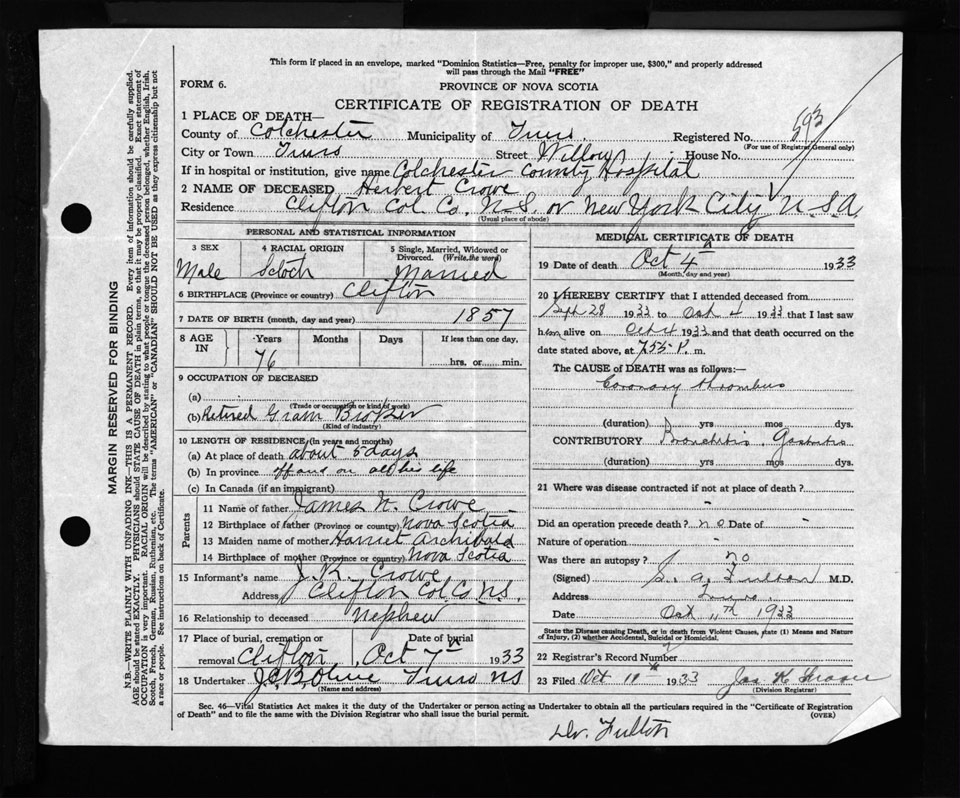 This form if placed in an envelope, marked "Dominion Statistics—Free, penalty for improper use, $300," and properly addressed
will pass through the Mail "FREE"
FORM 6.
PROVINCE OF NOVA SCOTIA
CERTIFICATE OF REGISTRATION OF DEATH
1 PLACE OF DEATH—
County of Colchester Municipality of Truro Registered No. 593
(For use of Registrar General only)
City or Town Truro Street Willow House No.
If in hospital or institution, give name Colchester County Hospital
2 NAME OF DECEASED Herbert Crowe
Residence Clifton Col. Co. N.S. or New York City U.S.A.
(Usual place of abode)
PERSONAL AND STATISTICAL INFORMATION
3 SEX 4 RACIAL ORIGIN 5 Single, Married, Widowed or Divorced. (Write the word)
Male Scotch Married
6 BIRTHPLACE (Province or country) Clifton
7 DATE OF BIRTH (month, day and year) 1857
8 AGE IN Years Months Days If less than one day,
76 hrs. or min.
9 OCCUPATION OF DECEASED
(a)
(Trade or occupation or kind of work)
(b) Retired Grain Broker
(Kind of industry)
10 LENGTH OF RESIDENCE (in years and months)
(a) At place of death about 5 days
(b) In province off and on all his life
(c) In Canada (if an immigrant)
Parents
11 Name of father James N. Crowe
12 Birthplace of father (Province or country) Nova Scotia
13 Maiden name of mother Harriet Archibald
14 Birthplace of mother (Province or country) Nova Scotia
15 Informant's name J. R. Crowe
Address Clifton Col. Co. N.S.
16 Relationship to deceased Nephew
17 Place of burial, cremation or Date of burial
removal Clifton, Oct 7th 1933
18 Undertaker Truro NS
(Name and address)
MEDICAL CERTIFICATE OF DEATH
19 Date of death Oct 4th 1933
(Month, day and year)
20 I HEREBY CERTIFY that I attended deceased from
Sept 28 1933 to Oct 4 1933 that I last saw
him alive on Oct 4 1933 and that death occurred on the
date stated above, at 7.55 P. m.
The CAUSE of DEATH was as follows:—
Coronary thrombus
(duration) yrs mos dys.
CONTRIBUTORY Bronchitis. Gastritis
(duration) yrs mos dys.
21 Where was disease contracted if not at place of death?
Did an operation precede death? no Date of -
Nature of operation -
Was there an autopsy? no
(Signed) Fulton M.D.
Address Truro.
Date Oct 11th 1933
State the Disease causing Death, or in death from Violent Causes, state (1) Means and Nature
of Injury, (2) whether Accidental, Suicidal or Homicidal.
22 Registrar's Record Number
23 Filed Oct 1933 Jas K
(Division Registrar)
Sec. 46—Vital Statistics Act makes it the duty of the Undertaker or person acting as Undertaker to obtain all the particulars required in the "Certificate of Registration
of Death" and to file the same with the Division Registrar who shall issue the burial permit. (OVER)
Dr. Fulton
MARGIN RESERVED FOR BINDING
N.B.—WRITE PLAINLY WITH UNFADING INK—THIS IS A PERMANENT RECORD. Every item of information should be carefully supplied.
AGE should be stated EXACTLY. PHYSICIANS should STATE CAUSE OF DEATH in plain terms, so that it may be properly classified. Exact statement of
OCCUPATION is very important. RACIAL ORIGIN will be described by stating to what people or tongue the deceased person belonged, whether English, Irish,
Scotch, French, German, Russian, Ruthenian, etc. The terms "AMERICAN" or "CANADIAN" SHOULD NOT BE USED as they express citizenship but not
a race or people. See instructions on back of Certificate.